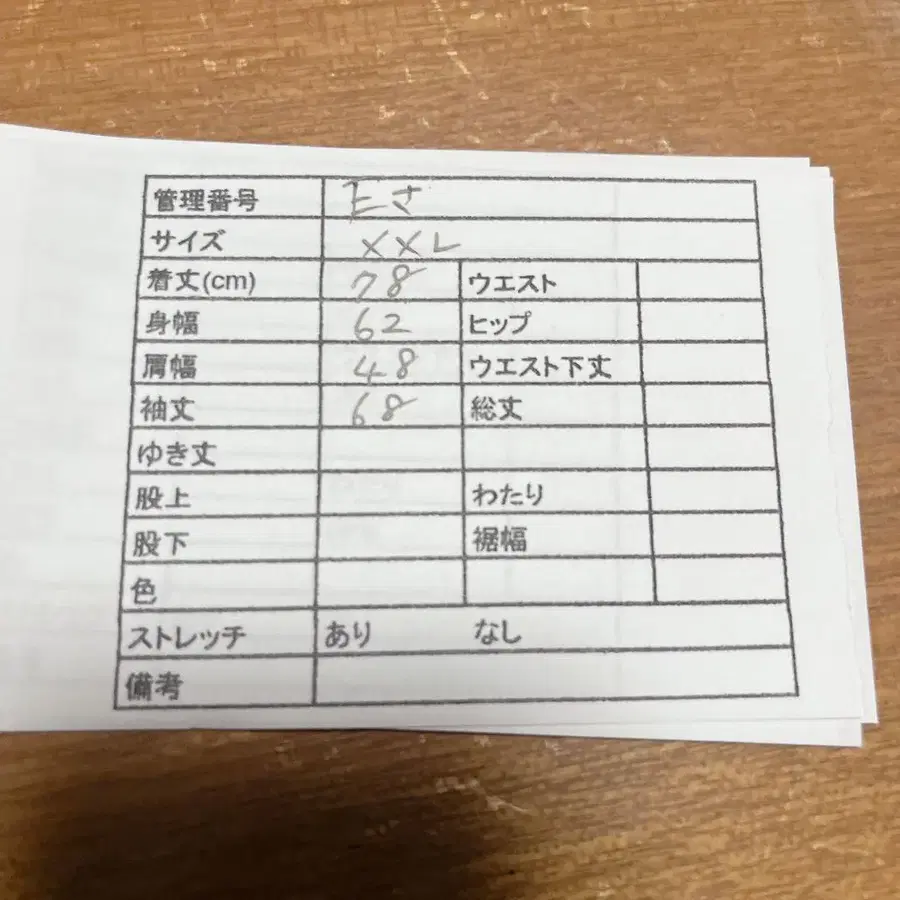 管理番号 Eさ
サイズ XXL
着丈(cm) 78 ウエスト
身幅 62 ヒップ
肩幅 48 ウエスト下丈
袖丈 68 総丈
ゆき丈
股上 わたり
股下 裾幅
色
ストレッチ あり なし
備考